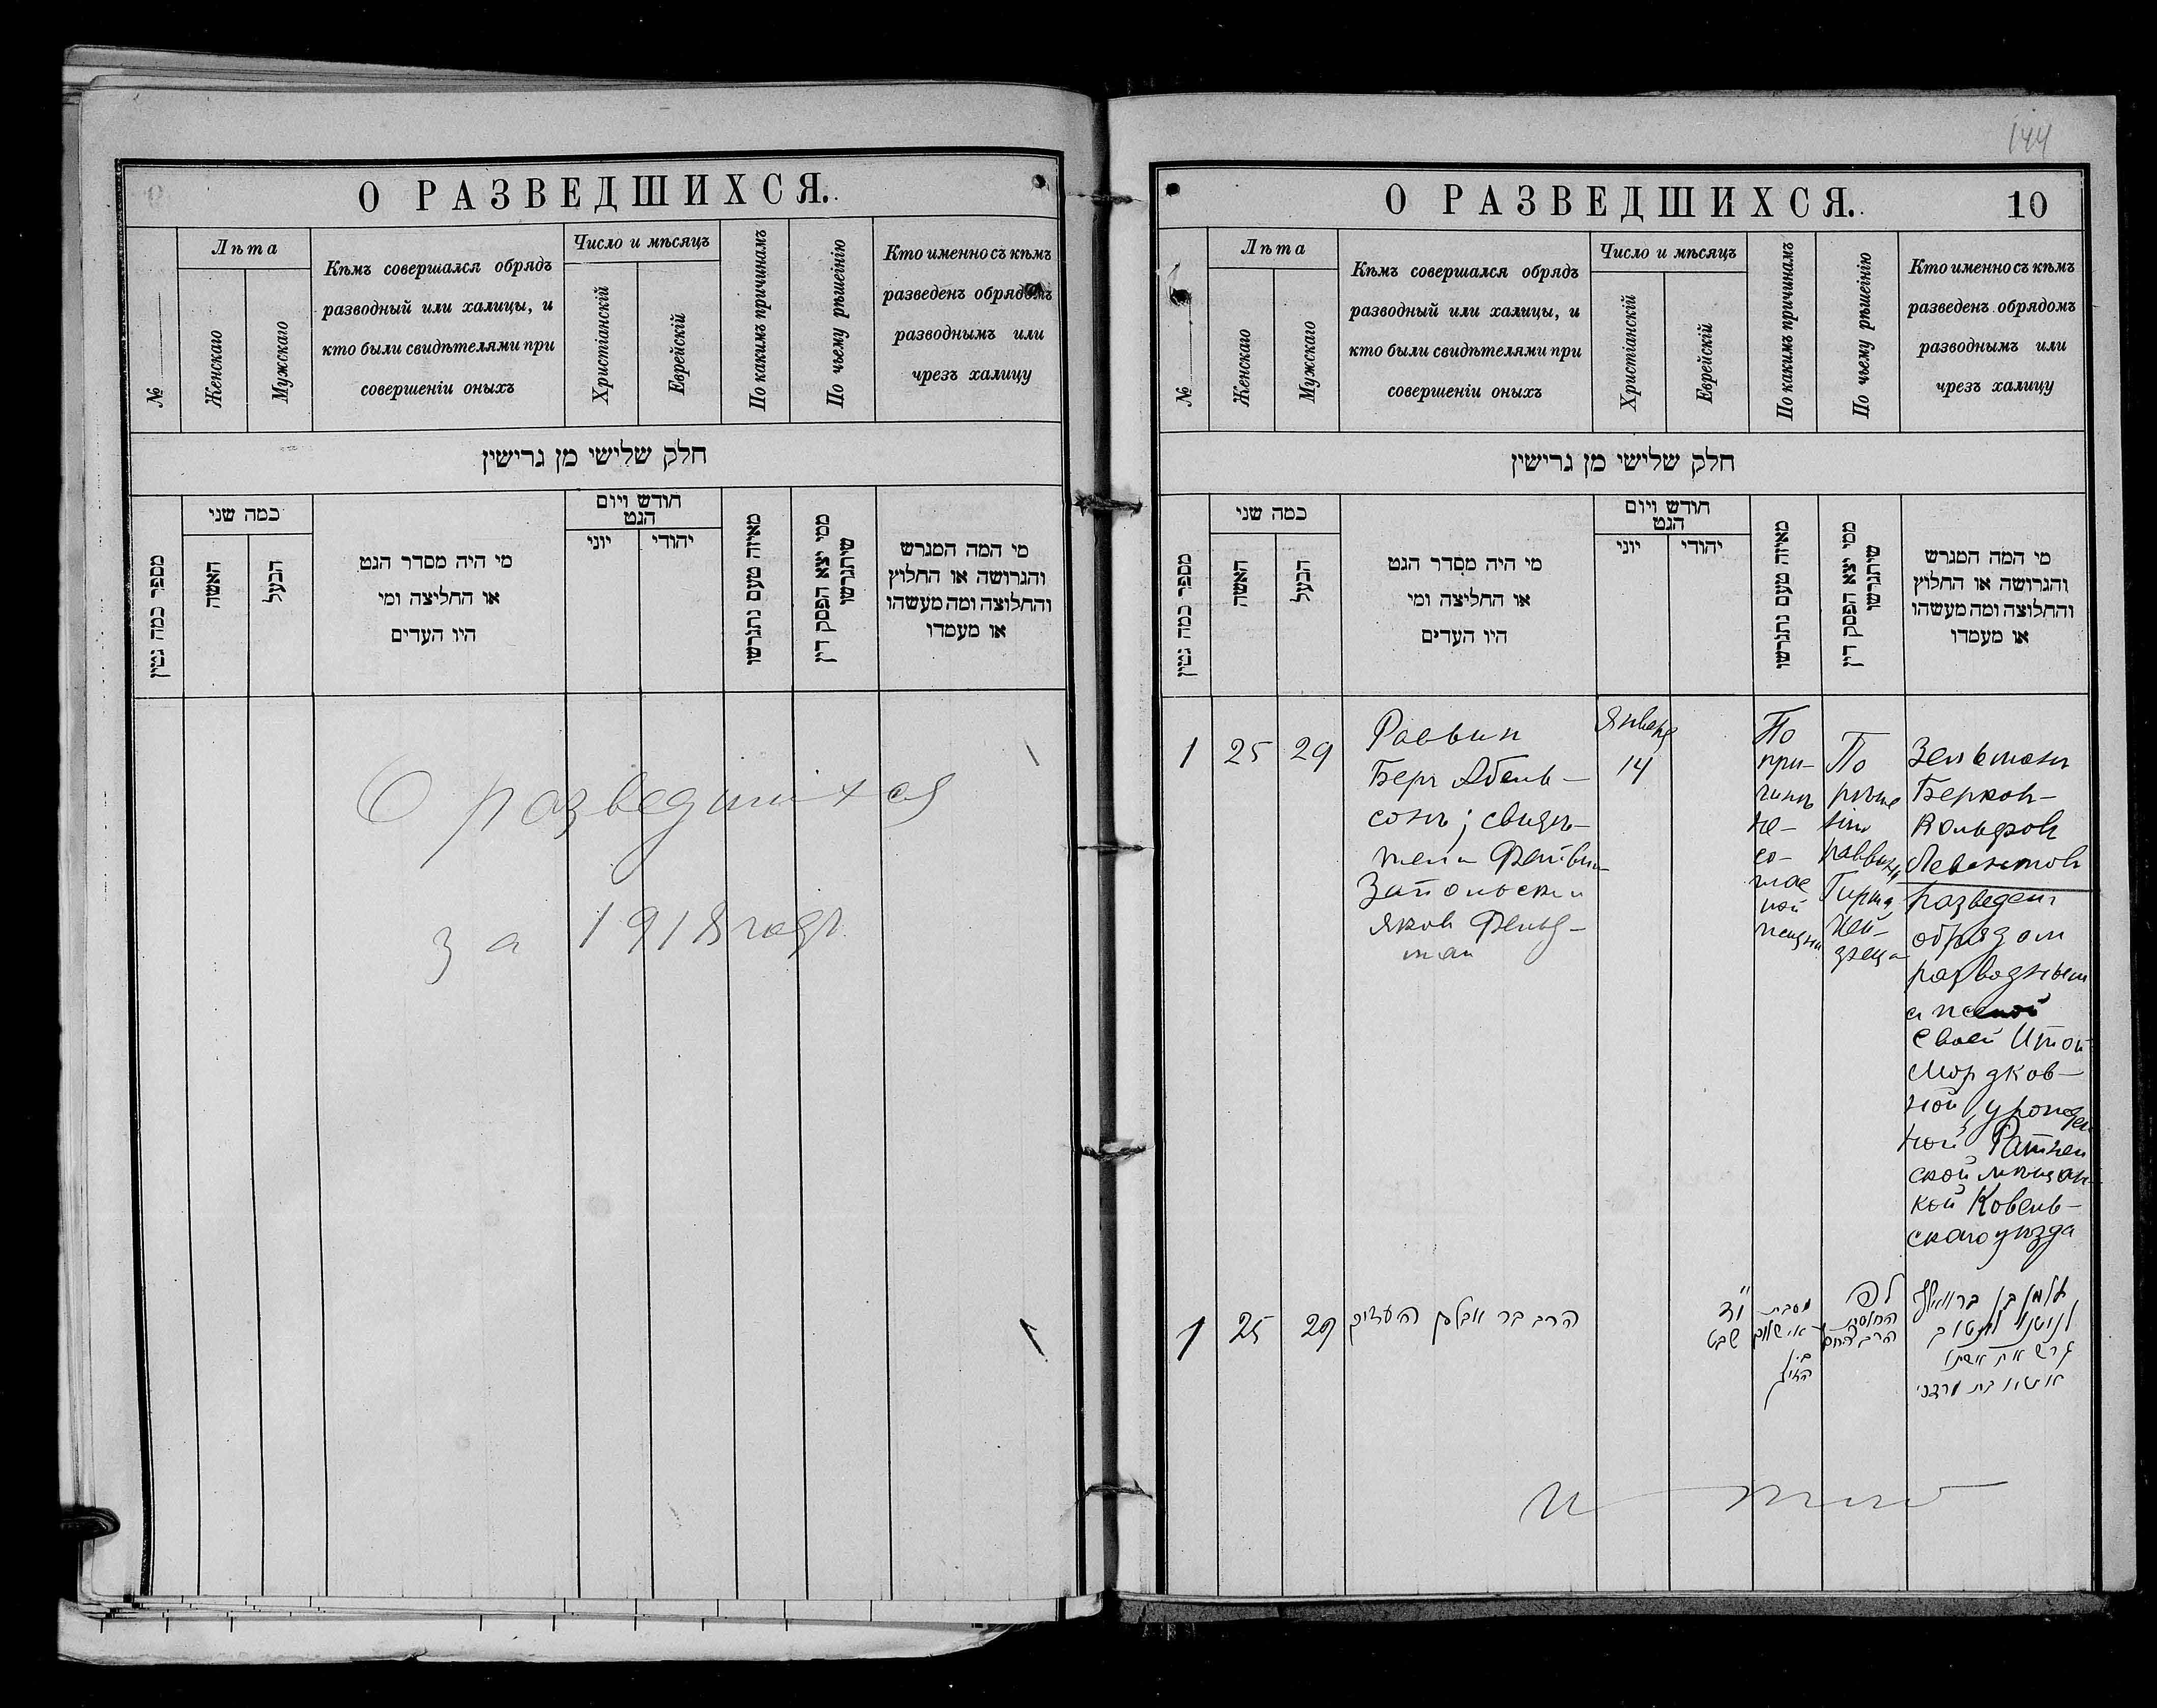 О РАЗВЕДШИХСЯ.
№
Лѣта
Женскаго
Мужскаго
Кѣмъ совершался обрядъ
разводный или халицы, и
кто были свидѣтелями при
совершеніи оныхъ
Число и мѣсяцъ
Христіанскій
Еврейскій
По какимъ причинамъ
По чьему рѣшеінію
Кто именно съ кѣмъ
разведенъ обрядомъ
разводнымъ или
чрезъ халицу
חלק שלישי מן גרישין
מספר כמה גטין
כמה שני
האשה
הבעל
מי היה מסדר הגט
או החליצה ומי
היו העדים
חודש ויום
הגט
יוני
יהודי
מאיזה טעם נתגרשו
ממי יצא הפסק דין
שיתגרשו
מי המה המגרש
והגרושה או החלוץ
והחלוצה ומה מעשהו
או מעמדו
О разведшихся
за 1918 годъ
144
О РАЗВЕДШИХСЯ.
10
№
Лѣта
Женскаго
Мужскаго
Кѣмъ совершался обрядъ
разводный или халицы, и
кто были свидѣтелями при
совершеніи оныхъ
Число и мѣсяцъ
Христіанскій
Еврейскій
По какимъ причинамъ
По чьему рѣшеінію
Кто именно съ кѣмъ
разведенъ обрядомъ
разводнымъ или
чрезъ халицу
חלק שלישי מן גרישין
מספר כמה גטין
כמה שני
האשה
הבעל
מי היה מסדר הגט
או החליצה ומי
היו העדים
חודש ויום
הגט
יוני
יהודי
מאיזה טעם נתגרשו
ממי יצא הפסק דין
שיתגרשו
מי המה המגרש
והגרושה או החלוץ
והחלוצה ומה מעשהו
או מעמדו
1
25
29
Раввин
Беръ Абель-
сонъ; свидѣ-
тели
Запольски
Яков Фельд-
ман
Января
14
По
при-
чинѣ
не-
со-
глас
ной
жизни
По
рѣше
нію
раввина
Зельманъ
Берков-
Вольфов
Левентов
разведенъ
обрядом
разводным
с женой
своей Итой
Мордков-
ной, урожден
ной Ратнер
ской мѣщан-
кой Ковень-
скаго уѣзда
1
25
29
הרב בר אבלסון והעדים
י"ד
שבט
מסבת
אי שלום
בין
הזוג
זלמן בן
גרש את אשתו
איטא בת מרדכי